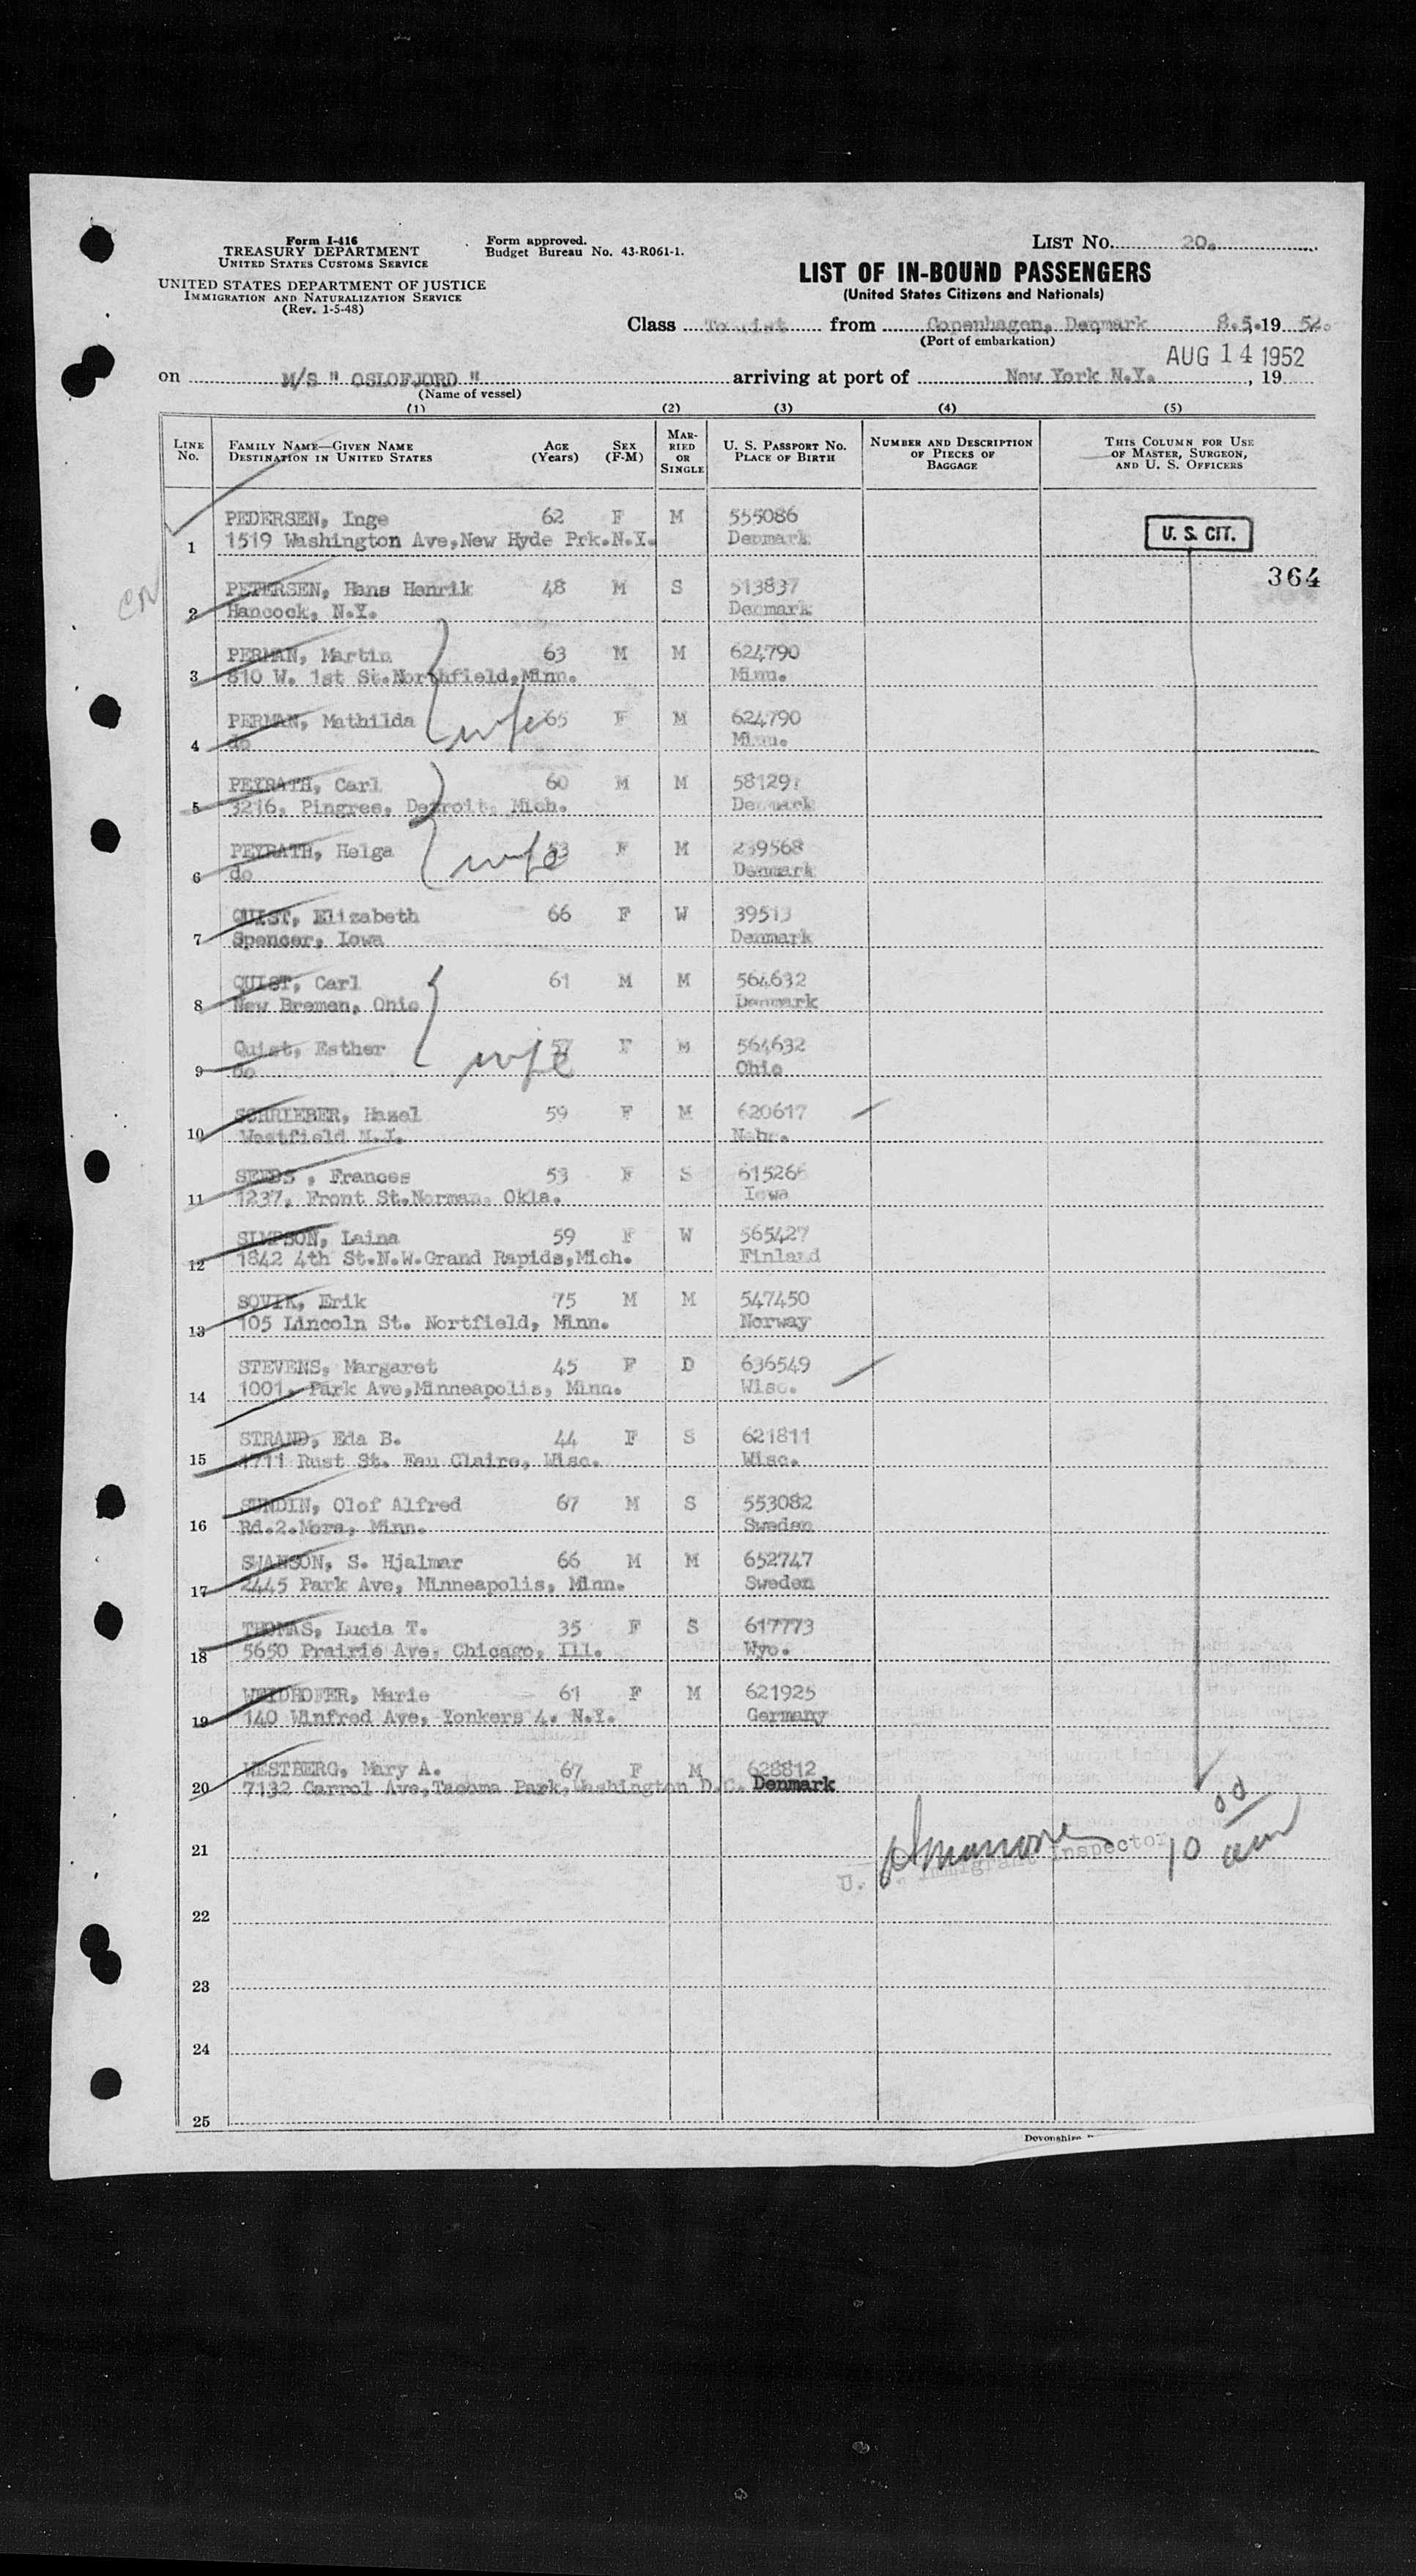 Form I-416
TREASURY DEPARTMENT
UNITED STATES CUSTOMS SERVICE
UNITED STATES DEPARTMENT OF JUSTICE
IMMIGRATION AND NATURALIZATION SERVICE
(Rev. 1-5-48)
Form approved.
Budget Bureau No. 43-R061-1.
LIST No. 20.
LIST OF IN-BOUND PASSENGERS
(United States Citizens and Nationals)
Class Tourist from Copenhagen, Denmark 8.5. 19 52.
(Port of embarkation)
AUG 14 1952
on M/S " OSLOFJORD " arriving at port of New York N.Y. , 19
(Name of vessel)
(1) (2) (3) (4) (5)
LINE No. FAMILY NAME—GIVEN NAME DESTINATION IN UNITED STATES AGE (Years) SEX (F-M) MARRIED OR SINGLE U. S. PASSPORT NO. PLACE OF BIRTH NUMBER AND DESCRIPTION OF PIECES OF BAGGAGE THIS COLUMN FOR USE OF MASTER, SURGEON, AND U. S. OFFICERS
PEDERSEN, Inge 62 F M 555086
1 1519 Washington Ave,New Hyde Prk.N.Y. Denmark
U. S. CIT.
364
PETERSEN, Hans Henrik 48 M S 513837
2 Hancock, N.Y. Denmark
PERMAN, Martin 63 M M 624790
3 810 W. 1st St.Northfield,Minn. Minn.
PERMAN, Mathilda wife 65 F M 624790
4 do Minn.
PEYRATH, Carl 60 M M 58129
5 3216, Pingree, Detroit, Mich. Denmark
PEYRATH, Helga wife 53 F M 239568
6 do Denmark
QUIST, Elizabeth 66 F W 39513
7 Spencer, Iowa Denmark
QUIST, Carl 61 M M 564632
8 New Bremen, Ohio Denmark
Quist, Esther wife 57 F M 564632
9 do Ohio
SCHRIEBER, Hazel 59 F M 620617
10 Westfield N.J. Nebr.
SEEDS , Frances 53 F S 615266
11 1237, Front St.Norman, Okla. Iowa
SIMPSON, Laina 59 F W 565427
12 1842 4th St.N.W.Grand Rapids,Mich. Finland
SOVIK, Erik 75 M M 547450
13 105 Lincoln St. Nortfield, Minn. Norway
STEVENS, Margaret 45 F D 636549
14 1001, Park Ave,Minneapolis, Minn. Wisc.
STRAND, Eda B. 44 F S 621811
15 1711 Rust St. Eau Claire, Wisc. Wisc.
SUNDIN, Olof Alfred 67 M S 553082
16 Rd.2.Mora, Minn. Sweden
SWANSON, S. Hjalmar 66 M M 652747
17 2445 Park Ave, Minneapolis, Minn. Sweden
THOMAS, Lucia T. 35 F S 617773
18 5650 Prairie Ave, Chicago, Ill. Wyo.
WEIDHOFER, Marie 61 F M 621925
19 140 Winfred Ave, Yonkers 4. N.Y. Germany
WESTBERG, Mary A. 67 F M 628812
20 7132 Carrol Ave,Tacoma Park,Washington D.C. Denmark
21
U. S. Immigrant Inspector
10 00 am
22
23
24
25
Devonshire